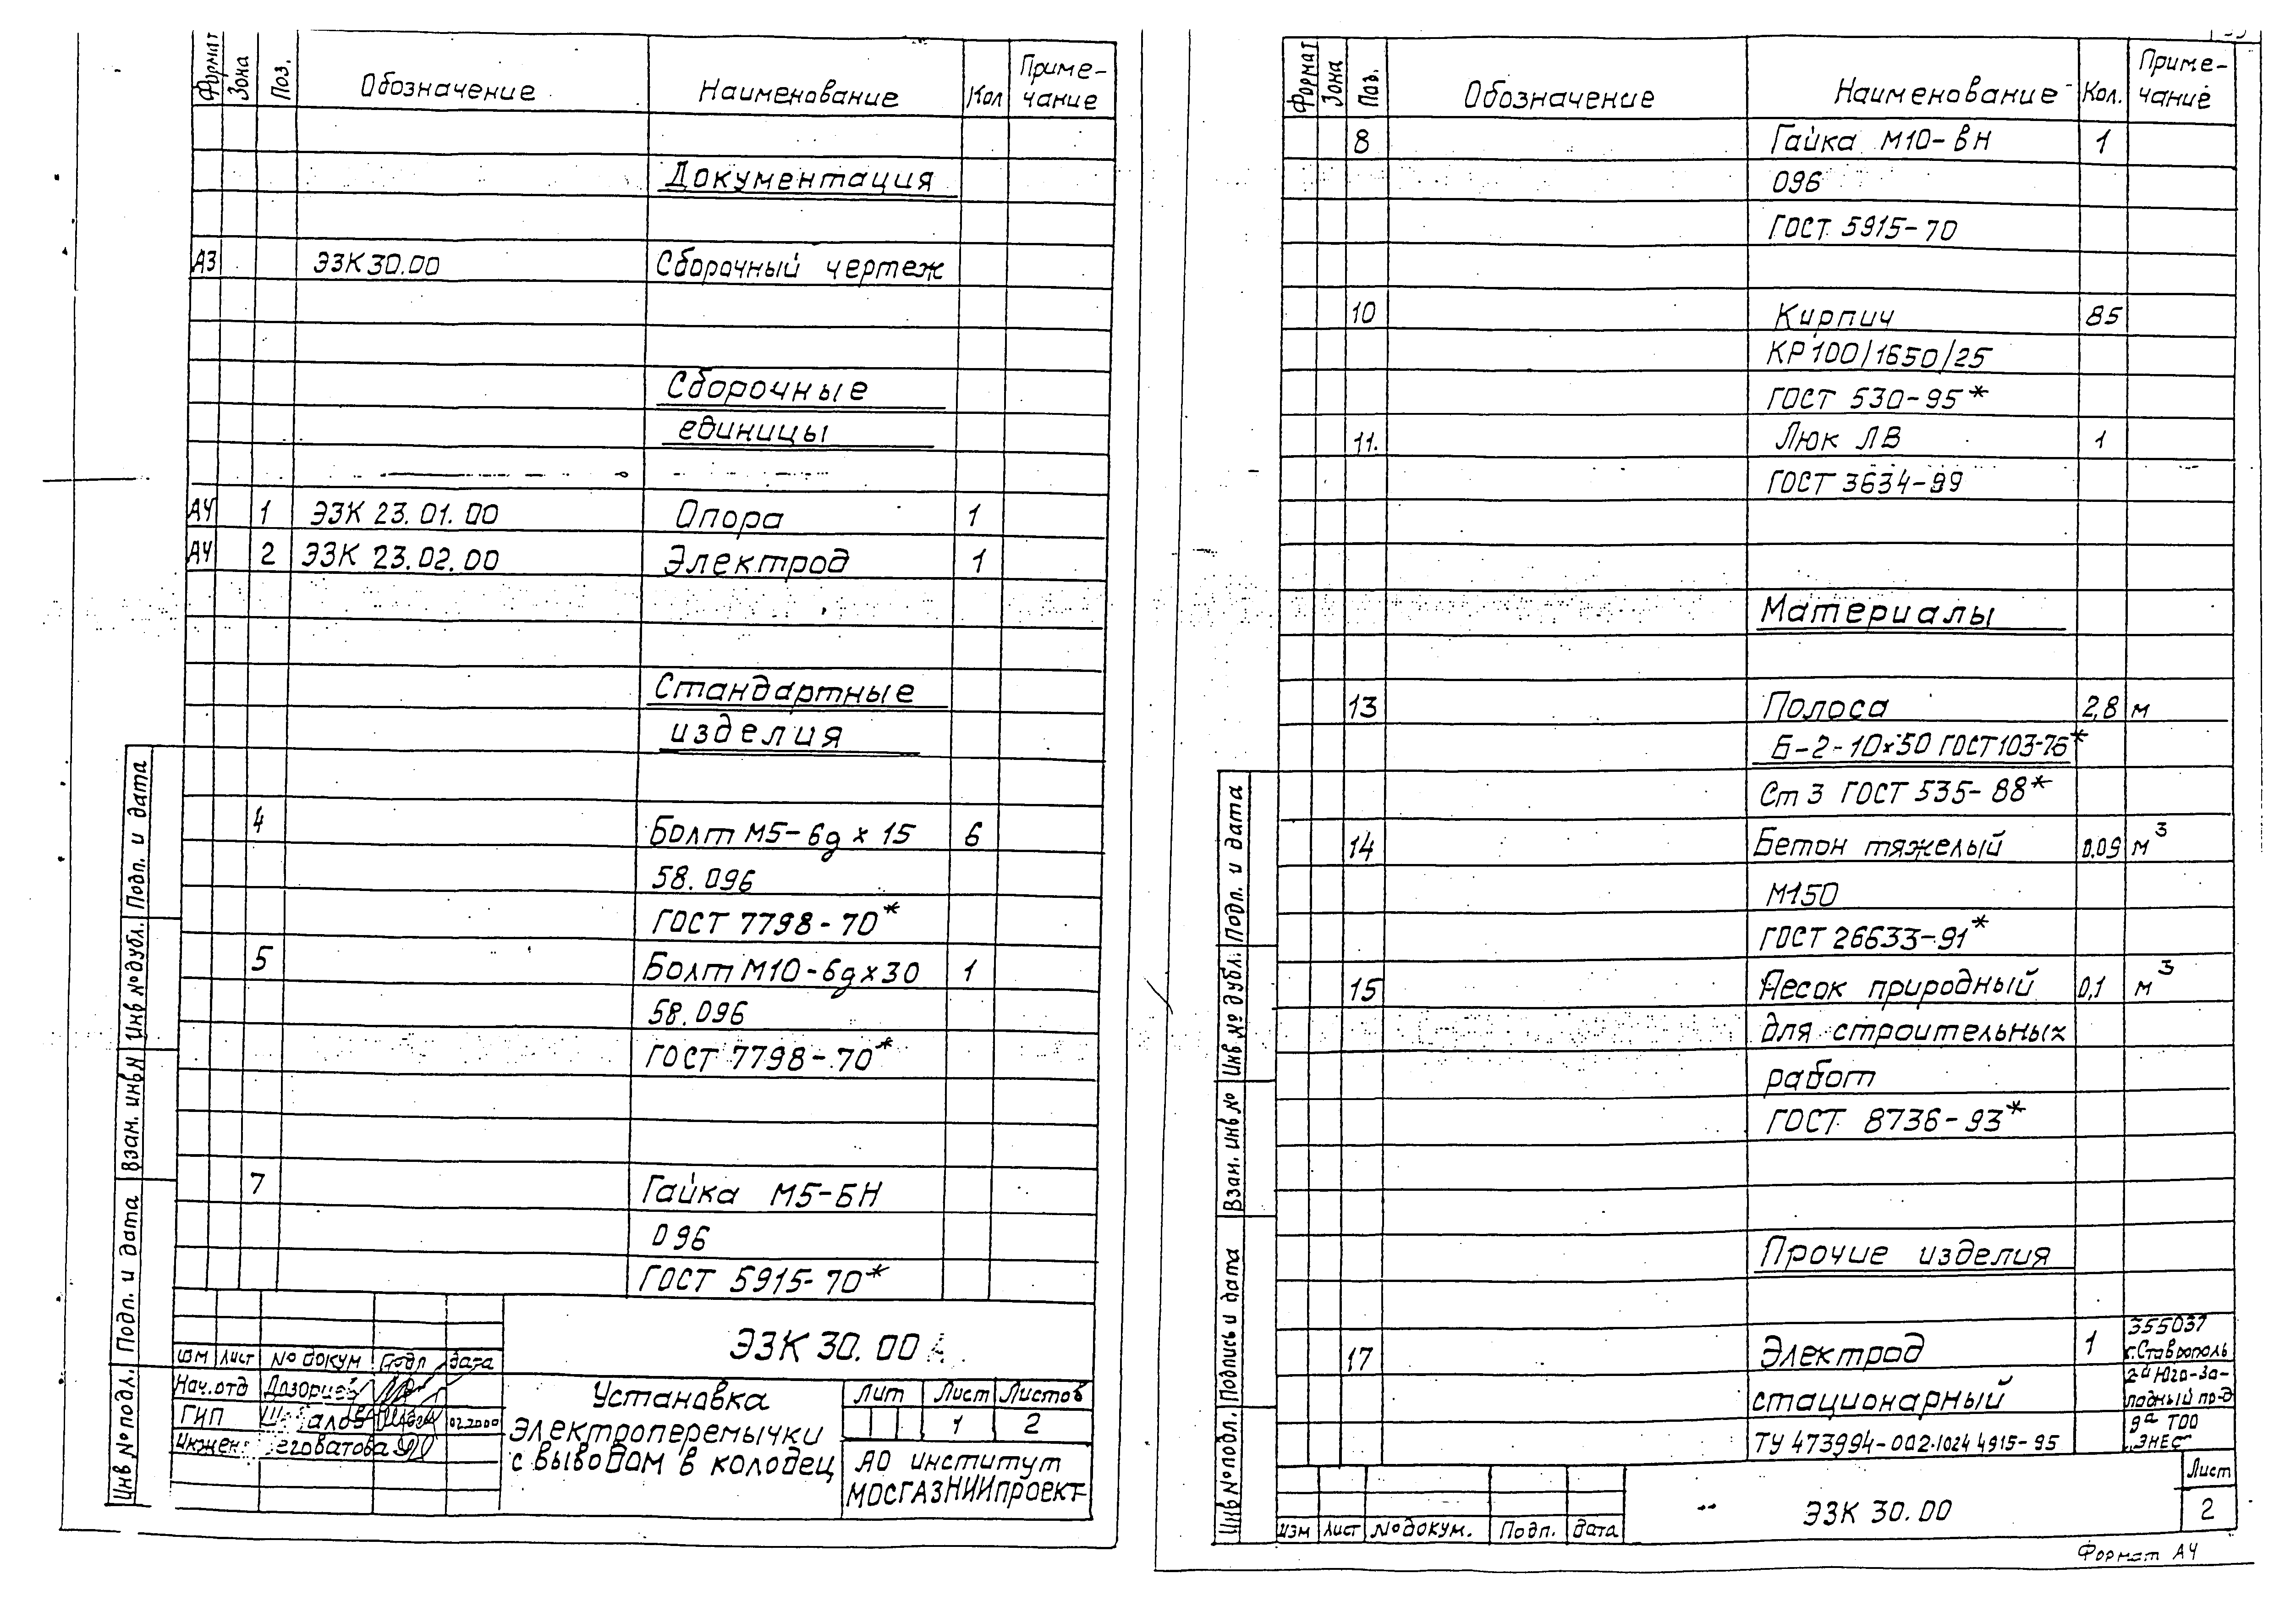 Формат Зона Поз. Обозначение Наименование Кол Приме-
чание
Документация
А3 ЭЗК 30.00 Сборочный чертеж
Сборочные
единицы
А4 1 ЭЗК 23.01.00 Опора 1
А4 2 ЭЗК 23.02.00 Электрод 1
Стандартные
изделия
4 Болт М5-6g х 15 6
58.096
ГОСТ 7798-70*
5 Болт М10-6g х 30 1
58.096
ГОСТ 7798-70*
7 Гайка М5-БН
096
ГОСТ 5915-70*
Подп. и дата
Инв № дубл.
Взам. инв N
Подп. и дата
Инв № подл.
ЭЗК 30.00
изм лист № докум Подп дата
Нач.отд
ГИП 02.2000
Инжен.
Установка
электроперемычки
с выводом в колодец
Лит Лист Листов
1 2
АО институт
МОСГАЗНИИпроект
Формат Зона Поз. Обозначение Наименование Кол. Приме-
чание
8 Гайка М10-вН 1
096
ГОСТ 5915-70
10 Кирпич 85
КР100/1650/25
ГОСТ 530-95*
11. Люк ЛВ 1
ГОСТ 3634-99
Материалы
13 Полоса 2,8 м
Б-2-10х50 ГОСТ103-76*
Ст 3 ГОСТ 535-88*
14 Бетон тяжелый 0.09 м³
М150
ГОСТ 26633-91*
15 Песок природный 0,1 м³
для строительных
работ
ГОСТ 8736-93*
Прочие изделия
17 Электрод 1
стационарный
ТУ 473994-002.1024 4915-95
355037
г.Ставрополь
2й Юго-За-
падный пр-д
9а ТОО
„ЭНЕС"
Подп. и дата
Инв № дубл.
Взам. инв №
Подпись и дата
Инв № подл.
изм лист № докум. Подп. дата
ЭЗК 30.00
Лист
2
Формат А4